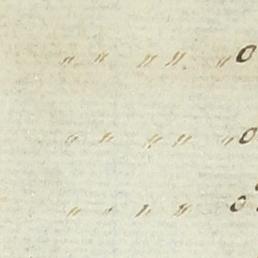 " " " " " 0
" " " " " 0
" " " " 0